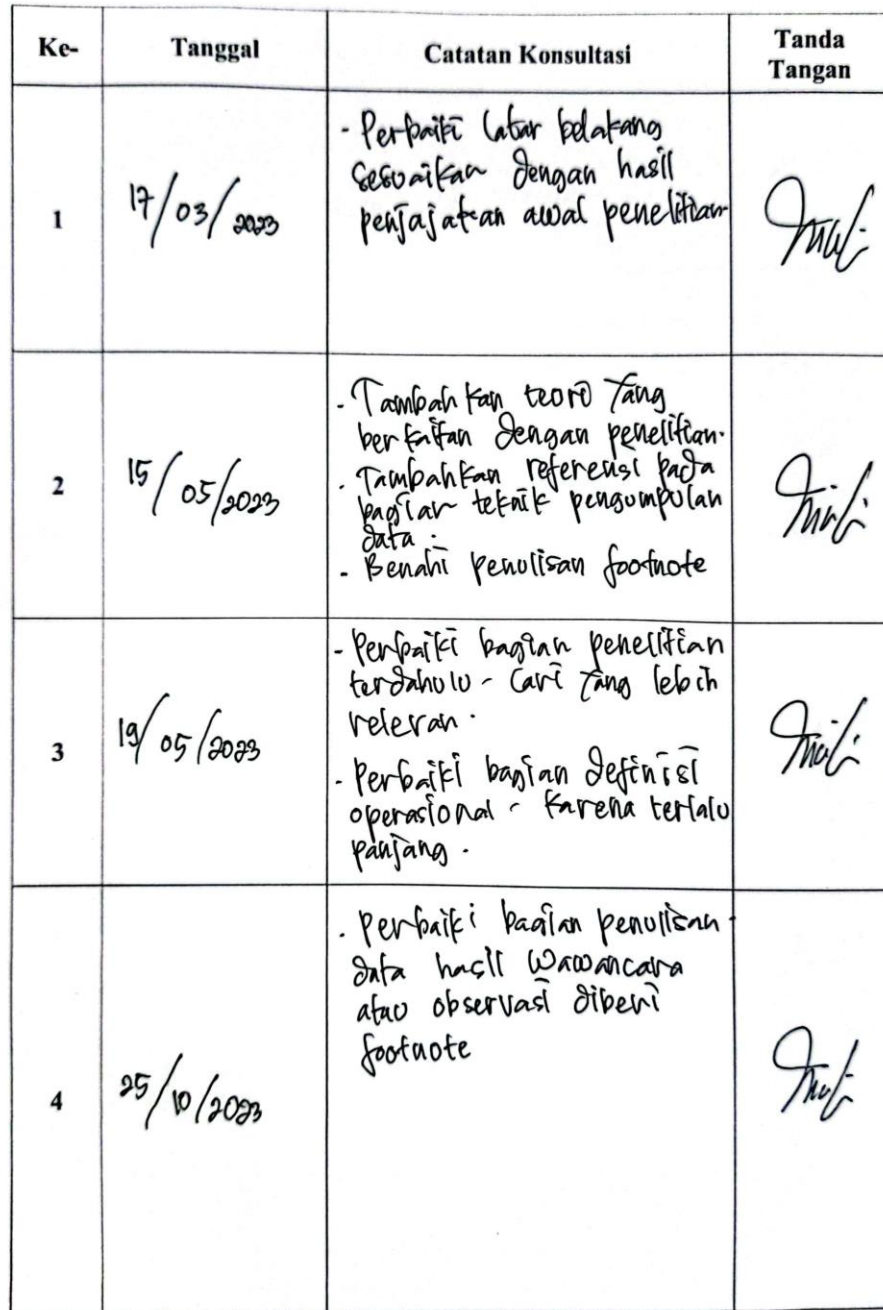 Ke- Tanggal Catatan Konsultasi Tanda Tangan
1 17/03/2023
- Perbaiki latar belakang
sesuaikan dengan hasil
penjajakan awal penelitian
2 15/05/2023
- Tambahkan teori yang
berkaitan dengan penelitian.
- Tambahkan referensi pada
bagian teknik pengumpulan
data.
- Benahi penulisan footnote
3 19/05/2023
- Perbaiki bagian penelitian
terdahulu - Cari yang lebih
relevan.
- Perbaiki bagian definisi
operasional - karena terlalu
panjang.
4 25/10/2023
- Perbaiki bagian penulisan
data hasil wawancara
atau observasi diberi
footnote